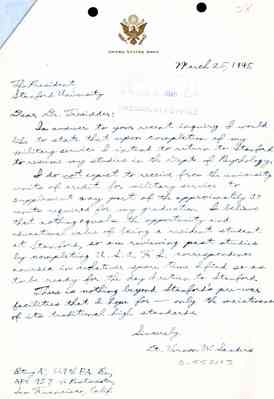 UNITED STATES ARMY
March 25, 1945
The President
Stanford University
Dear Dr. Tresidder:
In answer to your recent inquiry I would
like to state that upon completion of my
military service I intend to return to Stanford
to resume my studies in the Dept of Psychology.
I do not expect to receive from the university
units of credit for military service to
supplement any part of the approximately 35
units required for my graduation. I believe
that nothing equals the opportunity and
educational value of being a resident student
at Stanford, so am reviewing past studies
by completing U.S.A.F.I. correspondence
courses in whatever spare time I find so as
to be ready for the day I return to Stanford.
There is nothing beyond Stanford's pre-war
facilities that I hope for — only the maintenance
of its traditional high standards.
Sincerely,
Lt. Vernon W.
Btry A, F.A. Bn
APO 957 Postmaster
San Francisco, Calif.